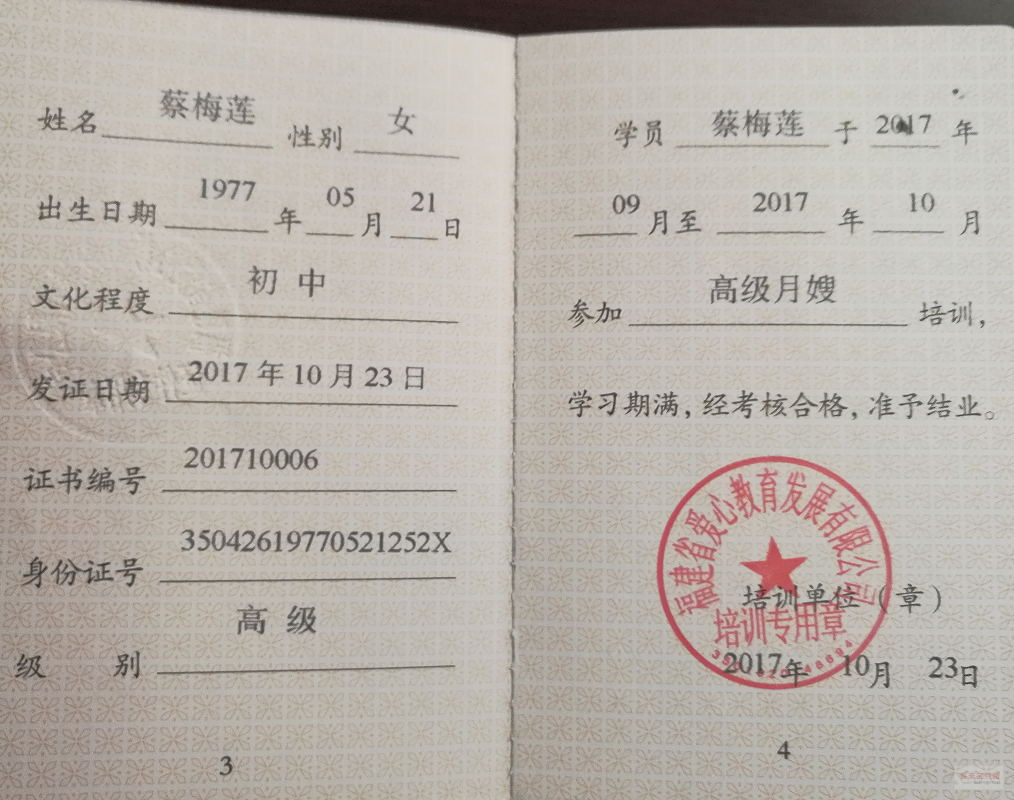 姓名 蔡梅莲 性别 女
出生日期 1977 年 05 月 21 日
文化程度 初中
发证日期 2017 年 10 月 23 日
证书编号 201710006
身份证号 35042619770521252X
级别 高级
3
学员 蔡梅莲 于 2017 年
09 月至 2017 年 10 月
参加 高级月嫂 培训，
学习期满，经考核合格，准予结业。
福建省爱心教育发展有限公司
培训单位（章）
培训专用章
2017年 10月 23日
4